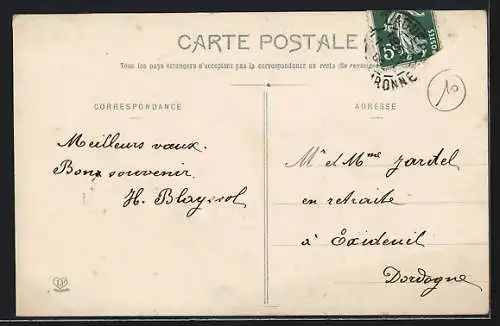 CARTE POSTALE
Tous les pays étrangers n'acceptent pas la correspondance au recto (Se renseigner
CORRESPONDANCE
ADRESSE
Meilleurs vœux.
Bons souvenir
H. Blayssol
Mr et Mme Jardel
en retraite
à Exideuil
Dordogne
5c
POSTES
RONNE
10